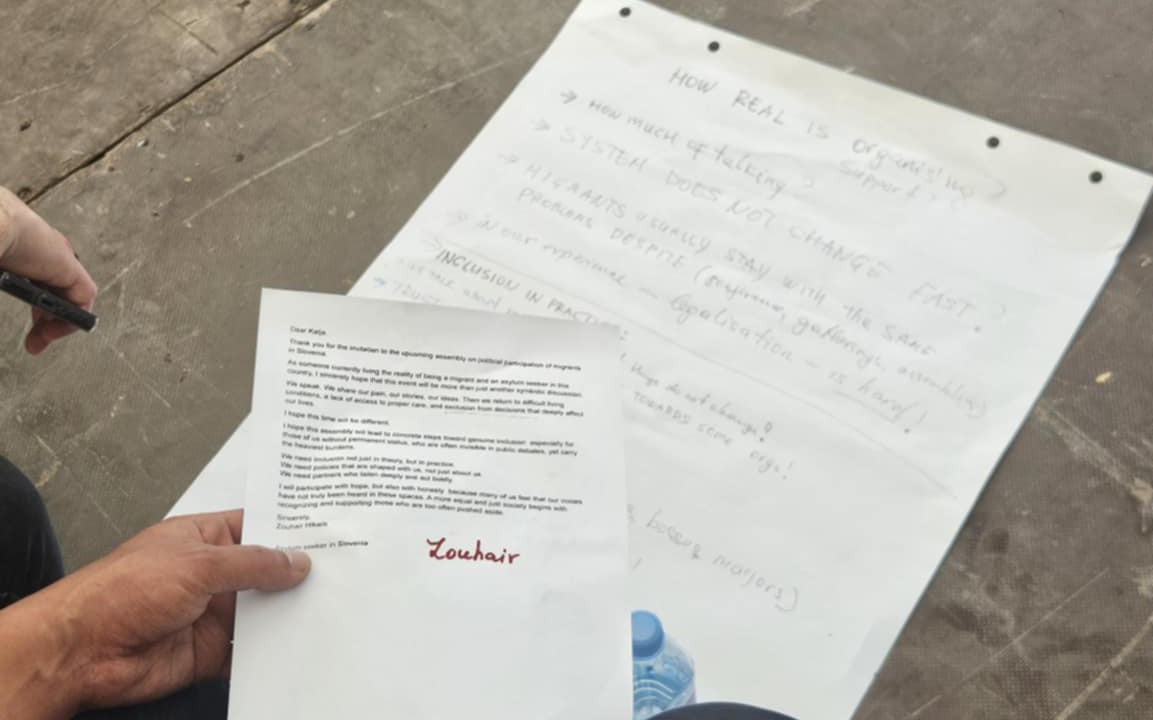 HOW REAL IS organising
support?
→ HOW MUCH of talking?
→ SYSTEM DOES NOT CHANGE FAST.
→ MIGRANTS usually STAY WITH the SAME
PROBLEMS DESPITE (conferences, gatherings, assemblies)
→ in our experience — legalisation is hard!
INCLUSION IN PRACTICE:
things do not change!
TOWARDS some
orgs!
Dear Katja
Thank you for the invitation to the upcoming assembly on political participation of migrants
in Slovenia.
As someone currently living the reality of being a migrant and an asylum seeker in this
country, I sincerely hope that this event will be more than just another symbolic discussion.
We speak. We share our pain, our stories, our ideas. Then we return to difficult living
conditions, a lack of access to proper care, and exclusion from decisions that deeply affect
our lives.
I hope this time will be different.
I hope this assembly will lead to concrete steps toward genuine inclusion especially for
those of us without permanent status, who are often invisible in public debates, yet carry
the heaviest burdens.
We need inclusion not just in theory, but in practice.
We need policies that are shaped with us, not just about us.
We need partners who listen deeply and act boldly.
I will participate with hope, but also with honesty because many of us feel that our voices
have not truly been heard in these spaces. A more equal and just society begins with
recognizing and supporting those who are too often pushed aside.
Sincerely,
Zouhair
Asylum seeker in Slovenia
Zouhair